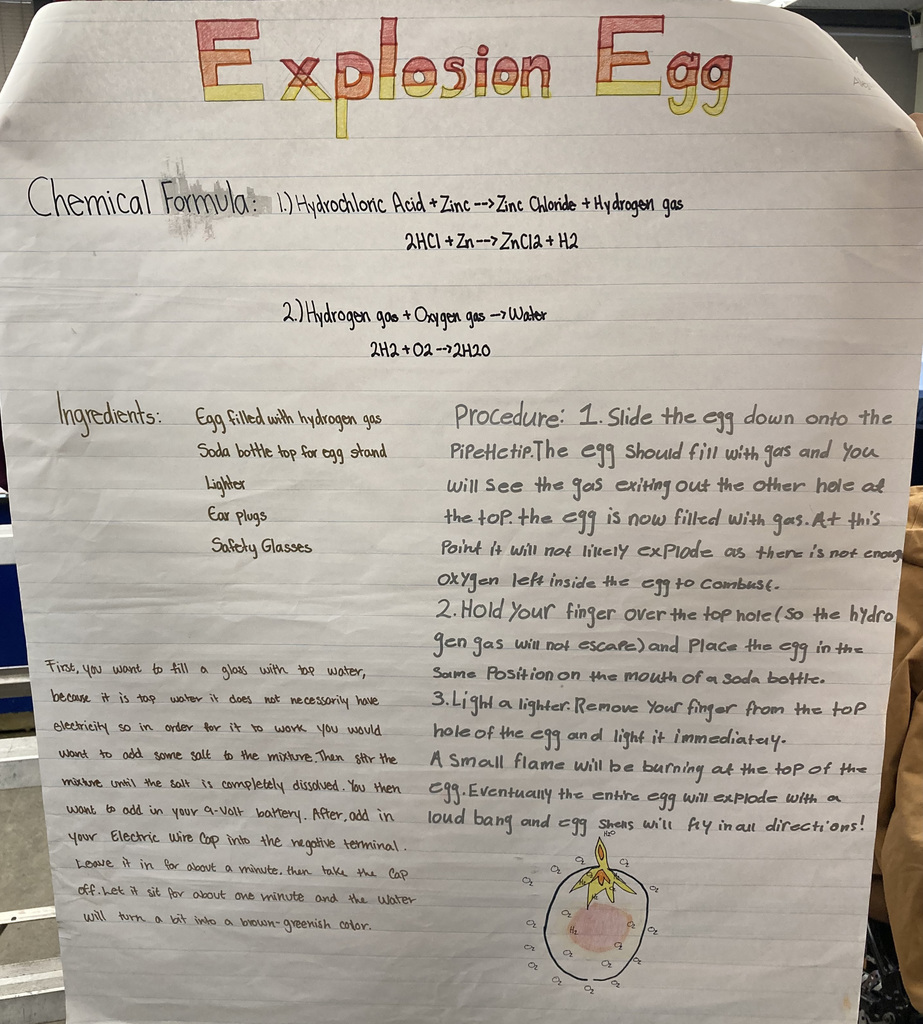 Explosion Egg
Chemical Formula: 1.) Hydrochloric Acid + Zinc --> Zinc Chloride + Hydrogen gas
2HCl + Zn --> ZnCl2 + H2
2.) Hydrogen gas + Oxygen gas --> Water
2H2 + O2 --> 2H2O
Ingredients:
Egg filled with hydrogen gas
Soda bottle top for egg stand
Lighter
Ear plugs
Safety Glasses
First, you want to fill a glass with tap water,
because it is tap water it does not necessarily have
electricity so in order for it to work you would
want to add some salt to the mixture. Then stir the
mixture until the salt is completely dissolved. You then
want to add in your 9-Volt battery. After, add in
your Electric Wire Cap into the negative terminal.
Leave it in for about a minute, then take the Cap
off. Let it sit for about one minute and the water
will turn a bit into a brown-greenish color.
Procedure: 1. Slide the egg down onto the
Pipettetip. The egg should fill with gas and you
will see the gas exiting out the other hole at
the top. the egg is now filled with gas. At this
Point it will not likely explode as there is not enough
oxygen left inside the egg to combust.
2. Hold your finger over the top hole (so the hydro
gen gas will not escape) and Place the egg in the
same Position on the mouth of a soda bottle.
3. Light a lighter. Remove your finger from the top
hole of the egg and light it immediately.
A small flame will be burning at the top of the
egg. Eventually the entire egg will explode with a
loud bang and egg shells will fly in all directions!
H2O
O2 O2
O2 O2
O2 O2
O2 O2
H2
O2 O2
O2 O2
O2 O2
O2 O2 O2